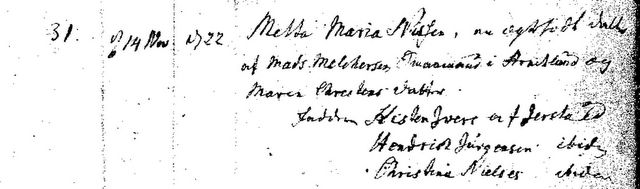 31. 14 Nov 22 Metta Maria Nissen, en ægtefødt datter
af Mads Melchersen, i Arnitlund og
Maren Chrestens datter.
Faddere Kisten Iwers af Jerstad
Hendrich Jürgensen ibid
Christina Nielses ibidem